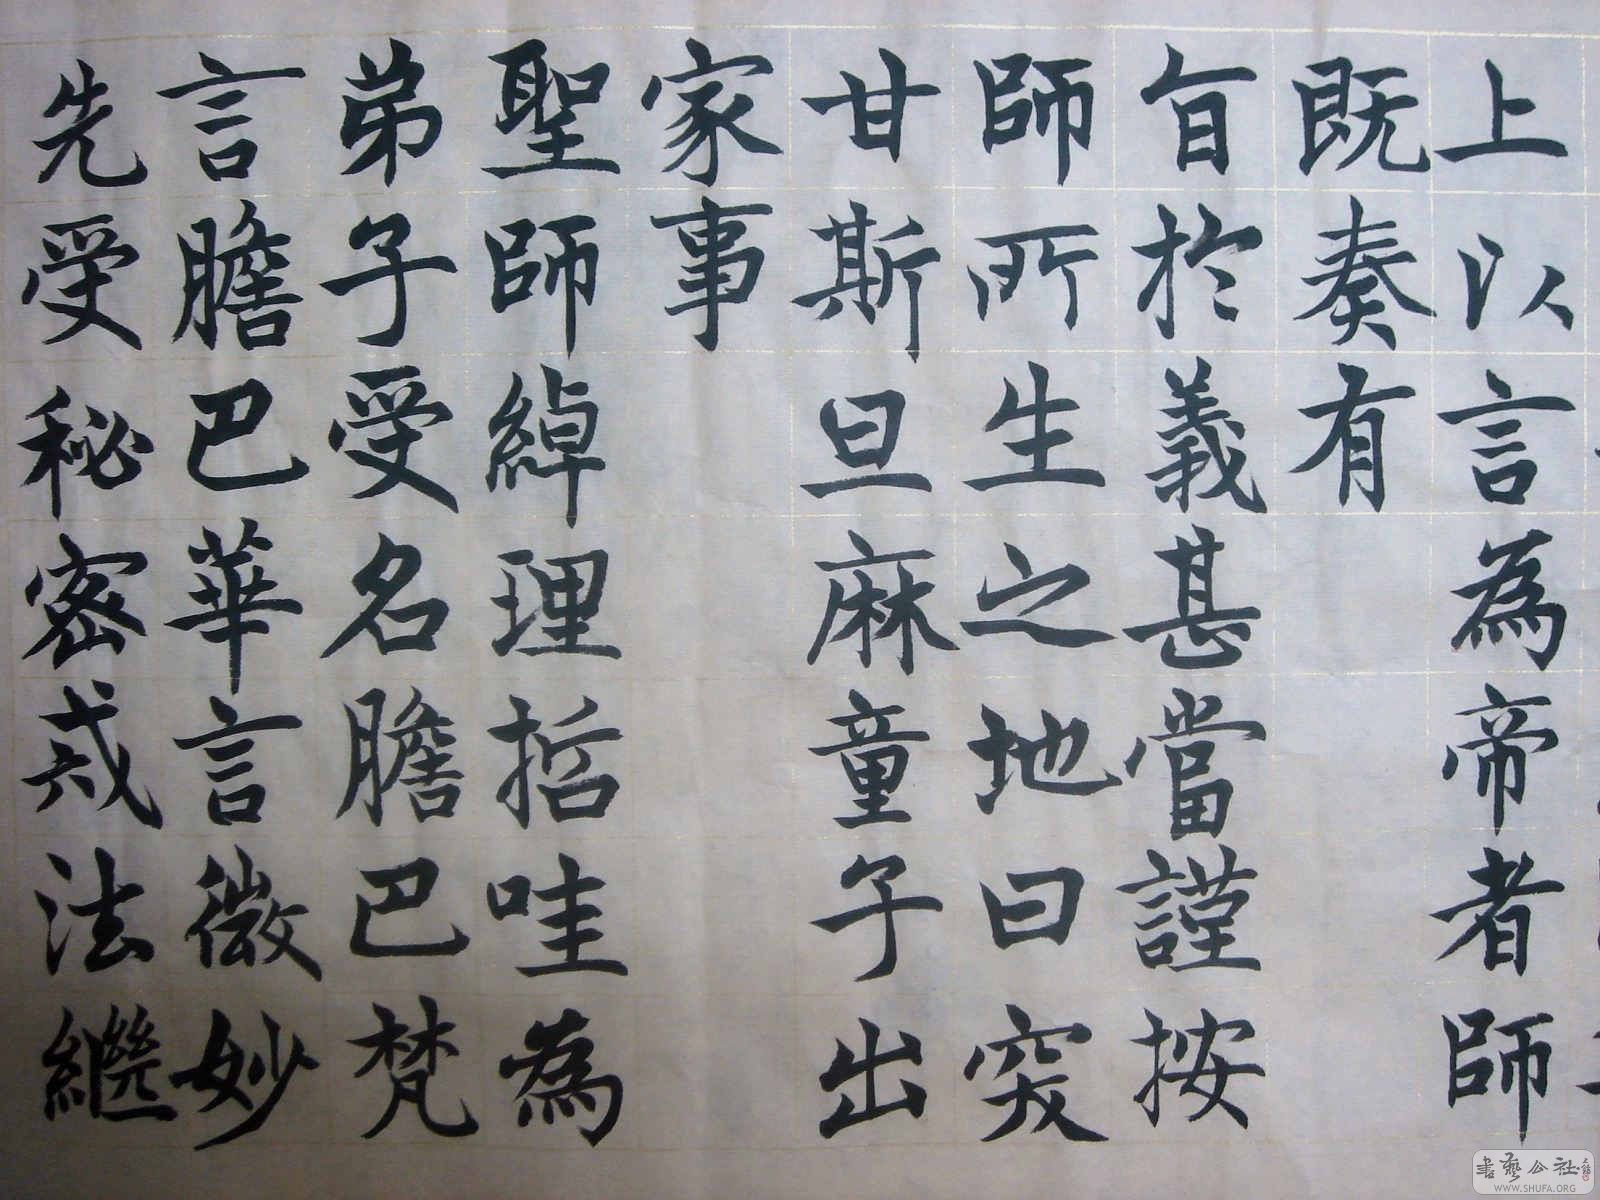 上以言為帝者師
既奏有
旨於義甚當謹按
師所生之地曰突
甘斯旦麻童子出
家事
聖師綽理哲哇為
弟子受名膽巴梵
言膽巴華言微妙
先受秘密戒法繼
書藝公社
WWW.SHUFA.ORG